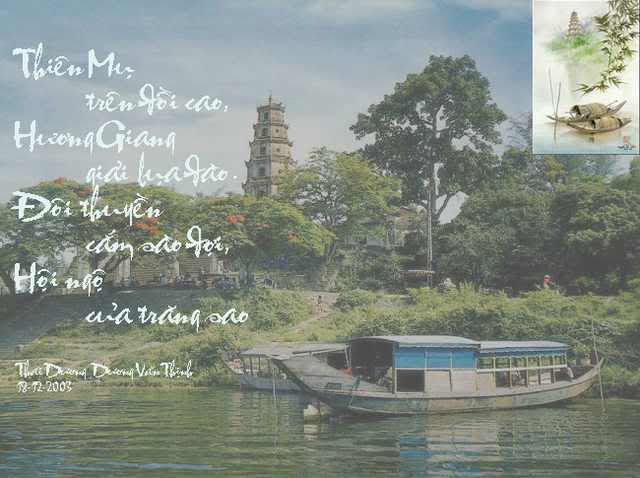 Thiên Mụ
trên đồi cao,
Hương Giang
giải lụa đào.
Đôi thuyền
cắm sào đợi,
Hội ngộ
của trăng sao
Thái Dương Dương Văn Thịnh
18-12-2003